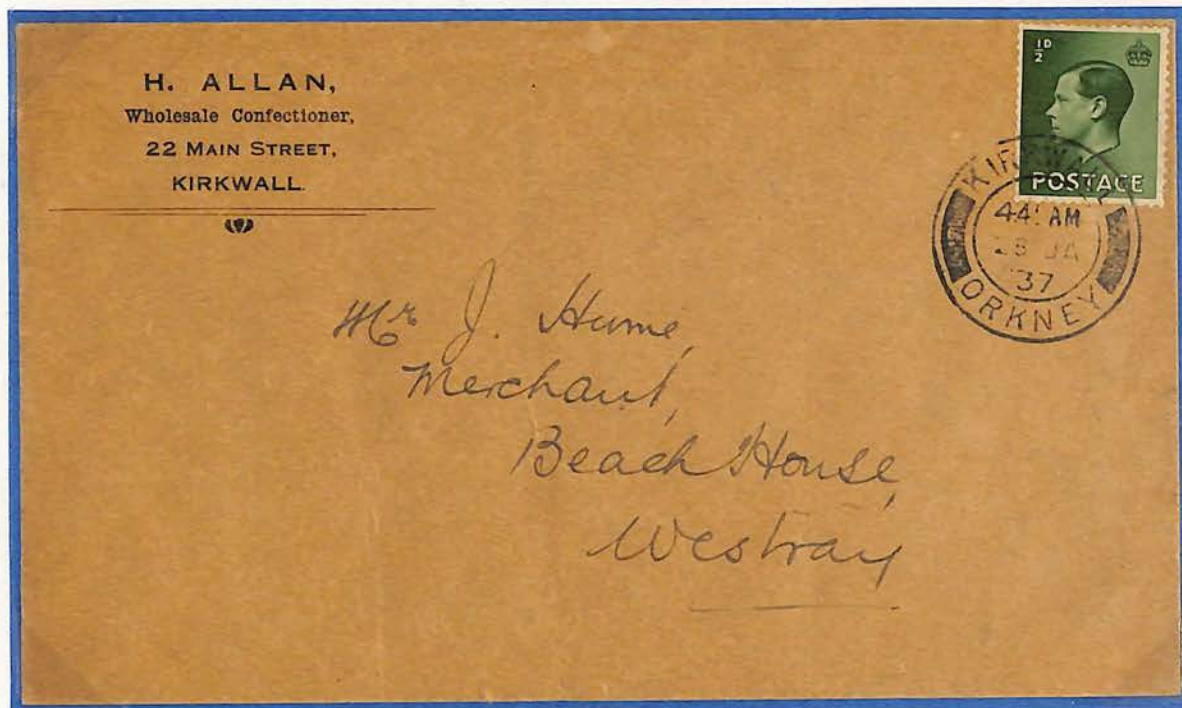 H. ALLAN,
Wholesale Confectioner,
22 MAIN STREET,
KIRKWALL.
½D
POSTAGE
KIRKWALL
AM
JA
37
ORKNEY
Mr J. Hume,
Merchant,
Beach House,
Westray